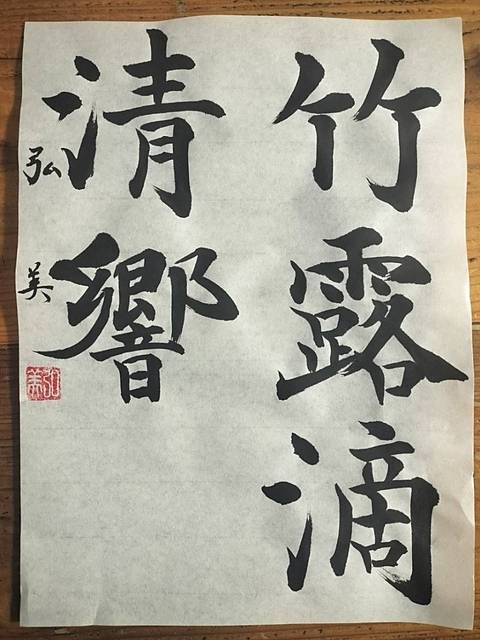 竹露滴
清響
弘美
弘美